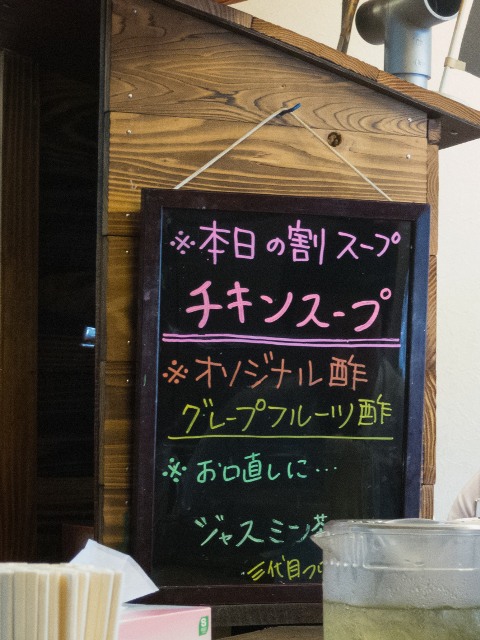 ※本日の割スープ
チキンスープ
※オリジナル酢
グレープフルーツ酢
※お口直しに…
ジャスミン茶
三代目つ
S